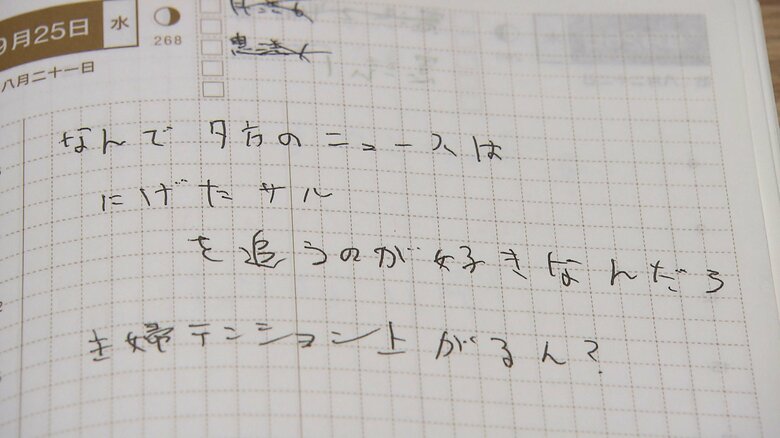 9月25日 水
268
八月二十一日
なんで 夕方のニュースは
にげたサル
を追うのが好きなんだろ
主婦テンション上がるん?